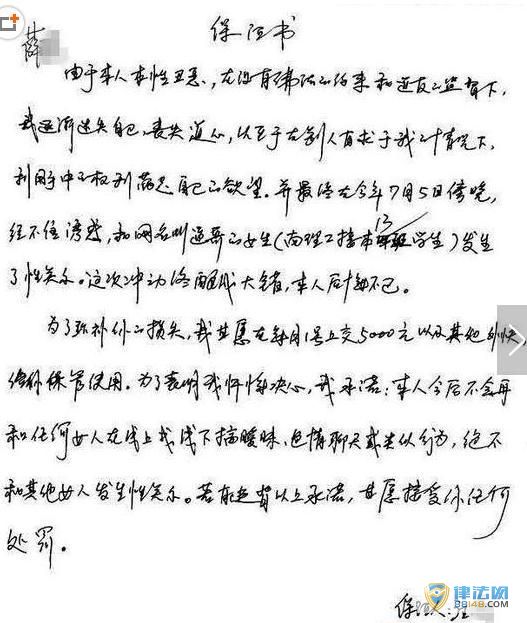 保证书
薛
由于本人本性丑恶,在没有佛法的约束和道友的监督下,
我逐渐迷失自己,丧失道心,以至于在别人有求于我之情况下,
利用手中之权利满足自己的欲望。并最终在今年7月5日傍晚,
经不住诱惑,和网名叫逍哥的女生(南理工接本13学生)发生
了性关系。这次冲动终酿成大错,本人后悔不已。
为了弥补你的损失,我甘愿在每月1号上交5000元以及其他外快
给你保管使用。为了表明我忏悔决心,我承诺:本人今后不会再
和任何女人在线上或线下搞暧昧、色情聊天或类似行为,绝不
和其他女人发生性关系。若有违背以上承诺,甘愿接受你任何
处罚。
保证人:
律法网